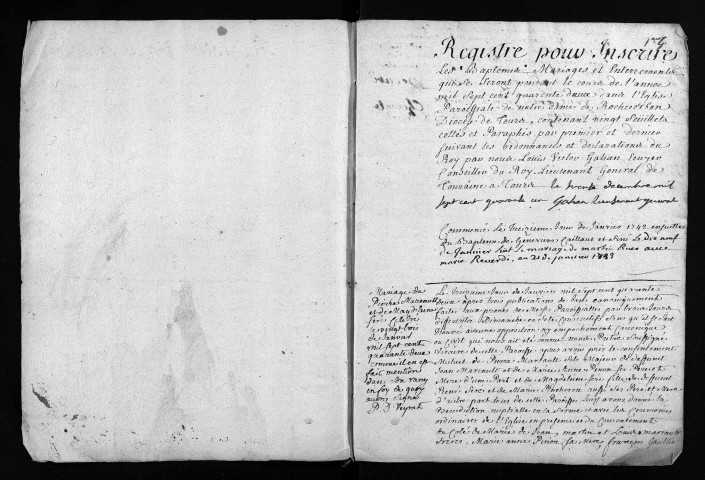 Registre pour Inscrire
Les Baptemes Mariages et Enterrements
qui se feront pendant le cours de l'année
mil sept cent quarente deux dans l'Eglise
Paroissiale de notre dame de Rochecorbon
Diocese de Tours, contenant vingt feuillets
cottés et Paraphés par premier et dernier
suivant les ordonnances et declarations du
Roy par nous Louis Victor Galian Ecuyer
Conseiller du Roy Lieutenant General de
Touraine a Tours le trente decembre mil
sept cent quarente un Galian Lieutenant general
Commencé le treizieme Jour de Janvier 1742 ensuitte
du Bapteme de Genevieve Caillaut et fini Le dix neuf
de Janvier par le mariage de martin Rues avec
marie Reverdi au 21 de janvier 1743
Mariage de
Pierre Marcault
et de Magdelaine
foré Celebré
le vingt trois
de Janvier
mil sept cent
quarante deux
comme il en est
fait mention
dans
en foy de quoy
avons signé
Le Jour de Janvier mil sept cent quarente
deux apres trois publications de bans canoniquement
faites aux prones de Messes Paroissialles par trois Jours
differents de Dimanche ou fete consecutifs sans qu'il se soit
trouvé aucune opposition ny empechement canonique
ou Civil que nous ait eté connu nous Pretre Soussigné
Vicaire de cette Paroisse apres avoir pris le consentement
Mutuel de Pierre Marcault fils Majeur de deffunt
Jean Marcault et de Marie Anne Pinon ses Pere et
Mere d'une Part et de Magdelaine foré fille de deffunt
Pierre foré et de Marie aussi ses Pere et Mere
d'autre part tous de cette Paroisse leur avons donné la
Benediction nuptialle en la forme et avec les Ceremonies
ordinaires de l'Eglise en presence et du Consentement
du Coté du Marié de Jean, martin et Louis marcault
freres, Marie anne Pinon sa Mere, françois Gaultier